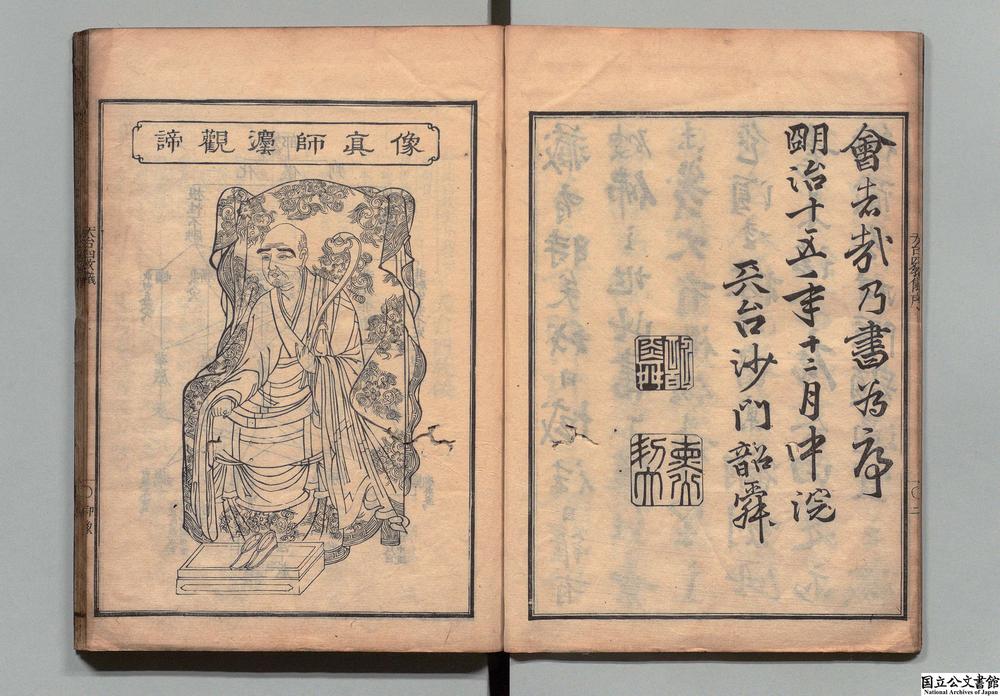 會者哉乃書為序
明治十五年十二月中浣
天台沙門韶舜
諦觀灋師真像
天台四教儀
国立公文書館
National Archives of Japan